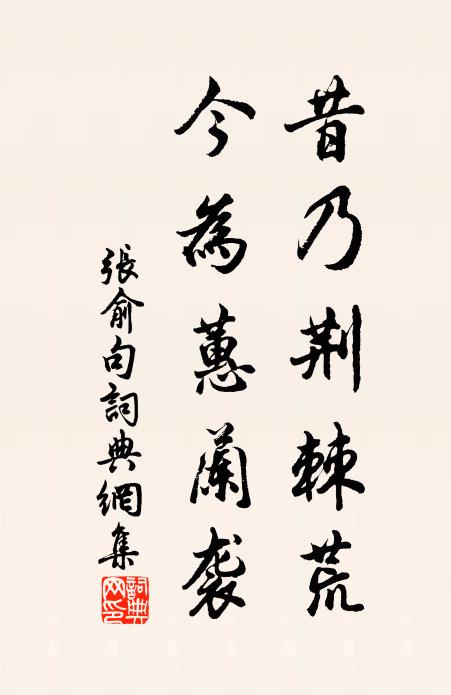 昔乃荆棘荒
今為蕙蘭袭
張俞句詞典網集
詞典网印